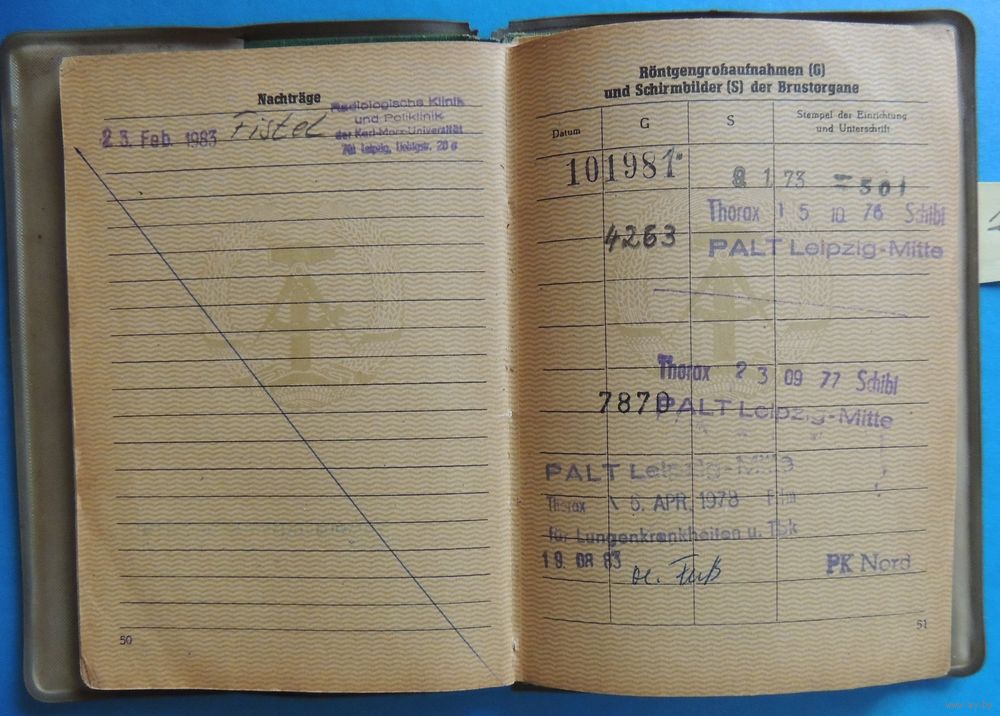 Nachträge
23. Feb. 1983 Fistel
Radiologische Klinik
und Poliklinik
der Karl-Marx-Universität
701 Leipzig, Liebigstr. 20 a
50
Röntgengroßaufnahmen (G)
und Schirmbilder (S) der Brustorgane
Datum G S Stempel der Einrichtung
und Unterschrift
101981
1 73 501
Thorax 15 10 76 Schibi
4263
PALT Leipzig-Mitte
Thorax 23 09 77 Schibi
7870
PALT Leipzig-Mitte
PALT Leipzig-Mitte
Thorax 6. APR. 1978 Film
für Lungenkrankheiten u. Tbk
19. 08 83
re. Fuß
PK Nord
51